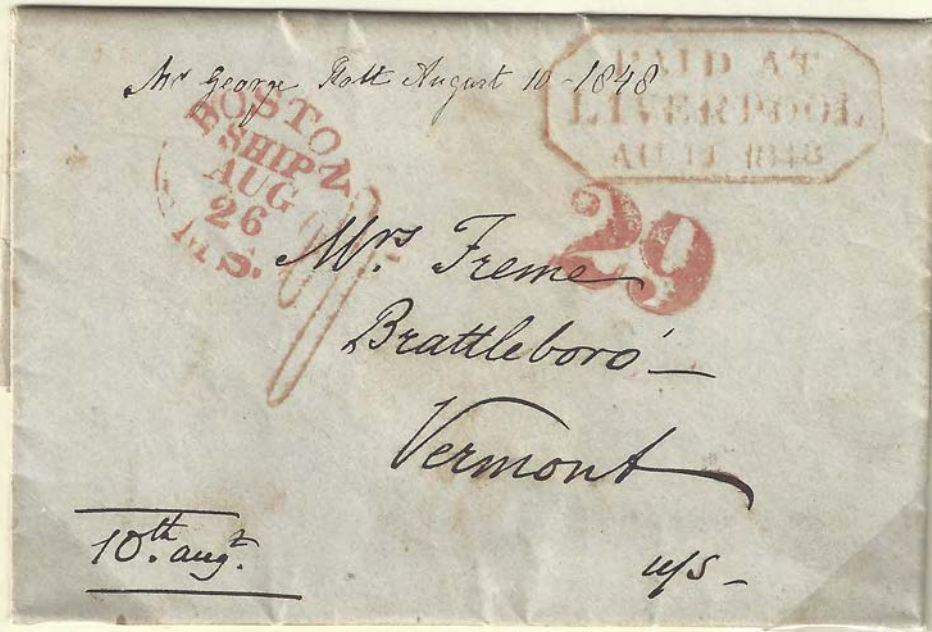 Mr George Holt August 10 - 1848
PAID AT
LIVERPOOL
AU 11 1848
BOSTON
SHIP
AUG
26
MS.
29
Mrs. Freme
Brattleboro' —
Vermont
10th. augt.
u/s -